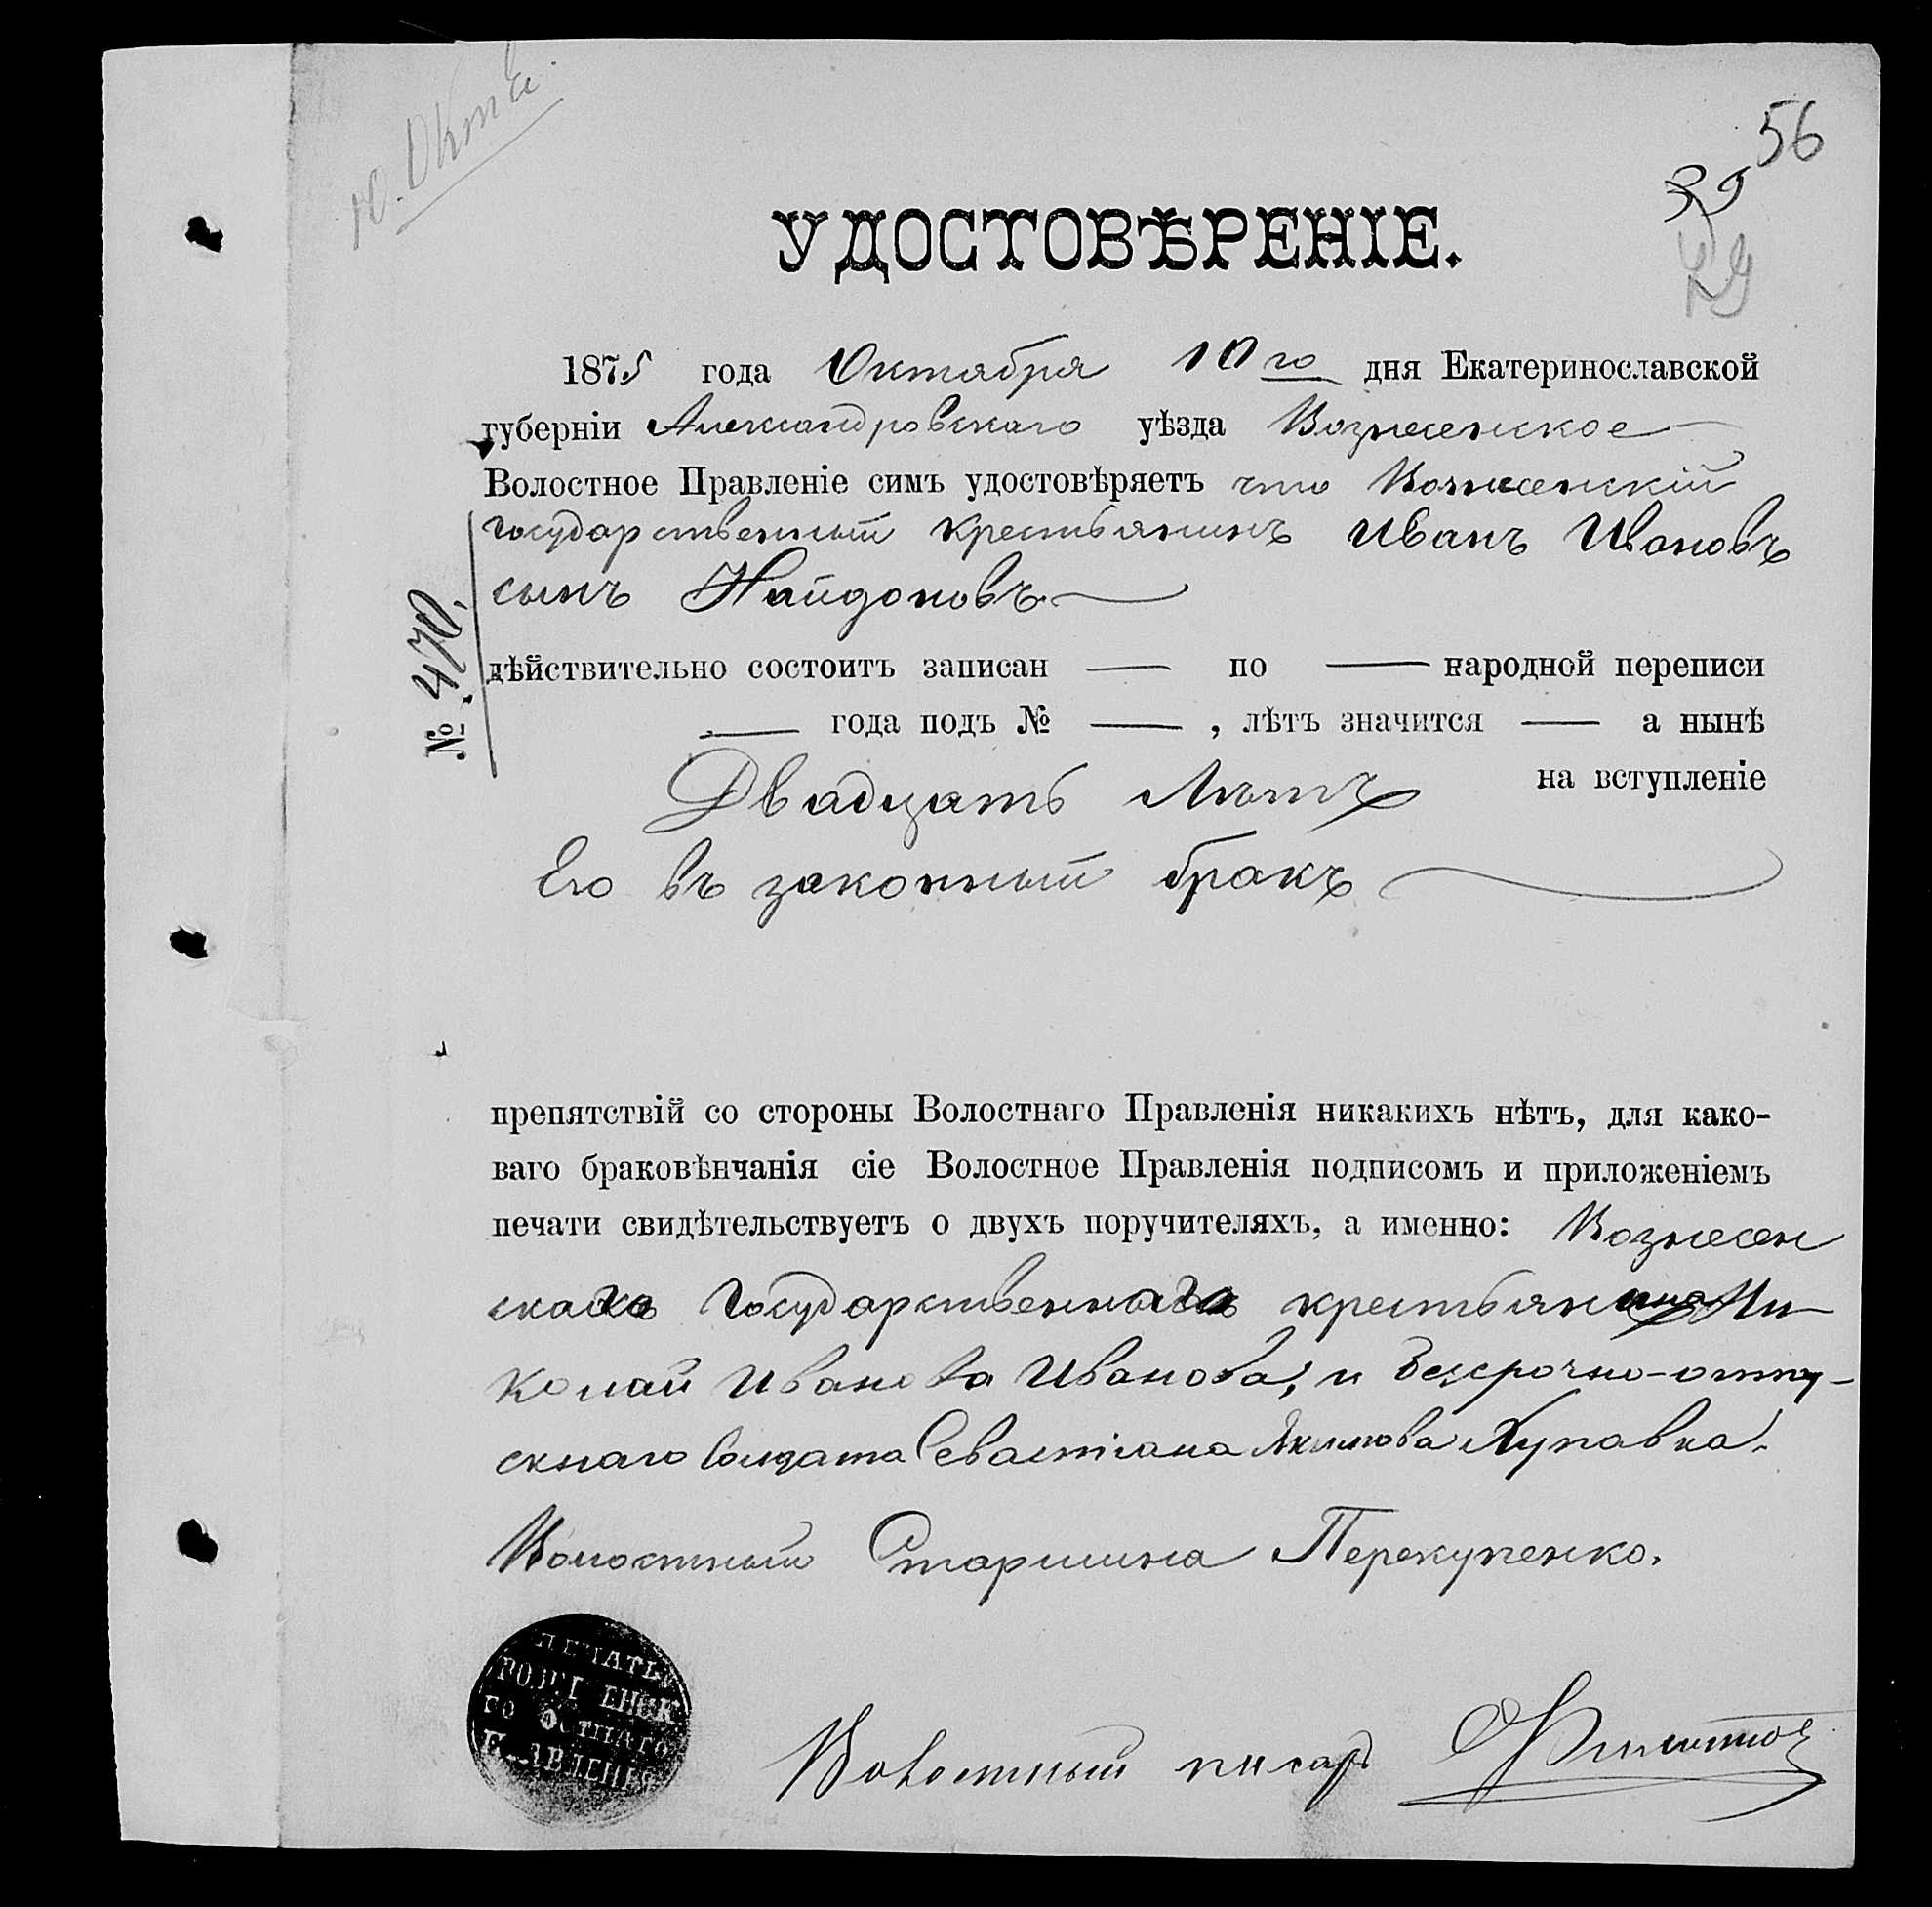 10. Октяб.
56
39
49
УДОСТОВѢРЕНІЕ.
1875 года Октября 10го дня Екатеринославской
губерніи Александровскаго уѣзда Вознесенское
Волостное Правленіе симъ удостовѣряетъ что Вознесенскій
государственный крестьянинъ Иванъ Ивановъ
сынъ Найдоновъ
№ 470.
дѣйствительно состоитъ записан — по — народной переписи
— года подъ № — , лѣтъ значится — а нынѣ
Двадцать Лѣтъ на вступленіе
Его въ законный бракъ
препятствій со стороны Волостнаго Правленія никакихъ нѣтъ, для како-
ваго браковѣнчанія сіе Волостное Правленія подписомъ и приложеніемъ
печати свидѣтельствуетъ о двухъ поручителяхъ, а именно: Вознесен
скаго Государственнаго крестьянина Ни
колай Иванова Иванова, и безсрочно-отпу-
скнаго Солдата Севастіана Якимова Купавка.
Волостный Старшина Перекупенко.
ПЕЧАТЬ
ВОЗНЕСЕНСК
ВОЛОСТНАГО
ПРАВЛЕНІЯ
Волостный писарь